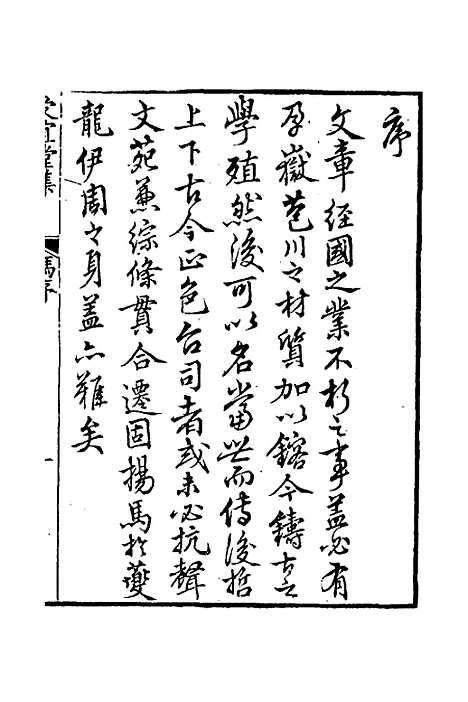 序
文章經國之業不朽之事蓋必有
孕嶽苞川之材質加以鎔今鑄古之
學殖然後可以名當世而傳後哲
上下古今正色台司者或未必抗聲
文苑兼綜條貫合遷固揚馬於夔
龍伊周之身蓋亦難矣
受宜堂集
馮序
一